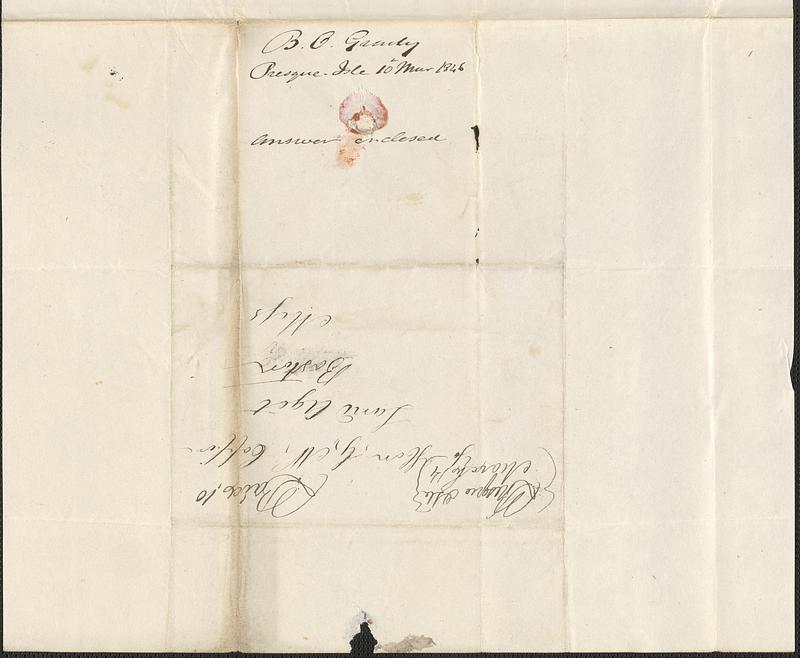 Presque-Isle 10 Mar 1846
answer enclosed
Presque Isle
March 14
Paid 10
Hon. G. W. Coffin
Land Agit
Boston